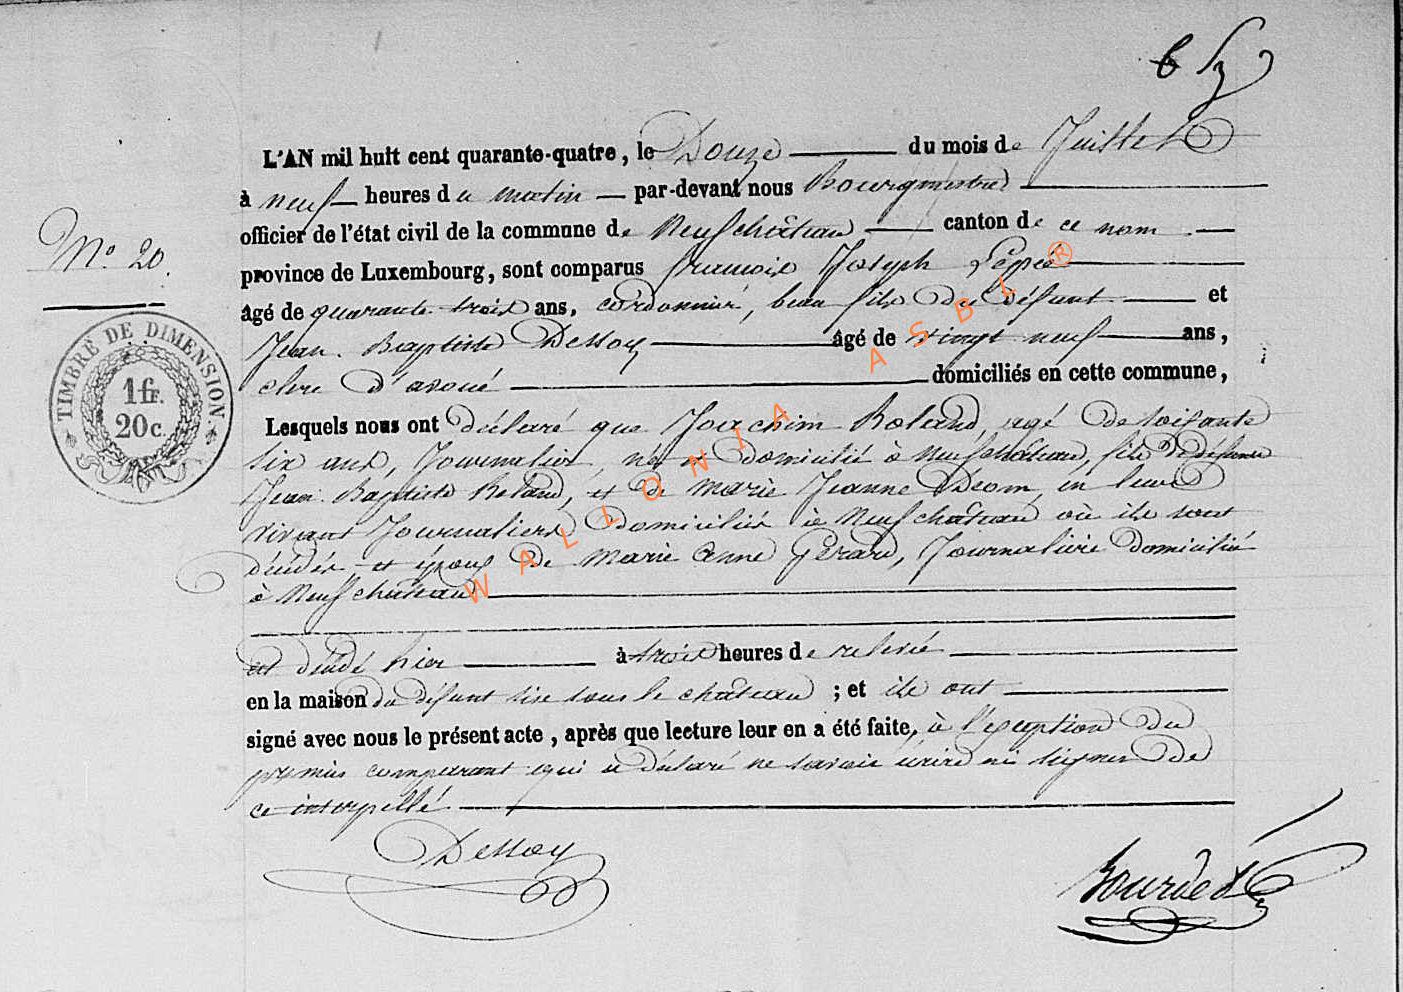 L'AN mil huit cent quarante-quatre, le Douze du mois de Juillet
à neuf heures du matin par-devant nous Bourgmestre
officier de l'état civil de la commune de Neufchâteau canton de ce nom
N° 20.
province de Luxembourg, sont comparus françois Joseph Péppé
âgé de quarante trois ans, cordonnier, beau fils du défunt et
Jean Baptiste Dessoy âgé de vingt neuf ans,
clerc d'avoué domiciliés en cette commune,
TIMBRE DE DIMENSION
1 fr.
20 c.
Lesquels nous ont déclaré que Joachim Roland, agé de soixante
six ans, Journalier, né et domicilié à Neufchâteau, fils de défunts
Jean Baptiste Roland, et de Marie Jeanne Deom, en leur
vivant Journaliers domiciliés à Neufchâteau où ils sont
décédés et époux de Marie Anne Gérard, Journalière domiciliée
à Neufchâteau
est décédé hier à trois heures de relevée
en la maison du défunt sise sous le château ; et ils ont
signé avec nous le présent acte, après que lecture leur en a été faite, à l'exception du
premier comparant qui a déclaré ne savoir écrire ni signer de
ce interpellé
Dessoy
WALLONIA ASBL ®